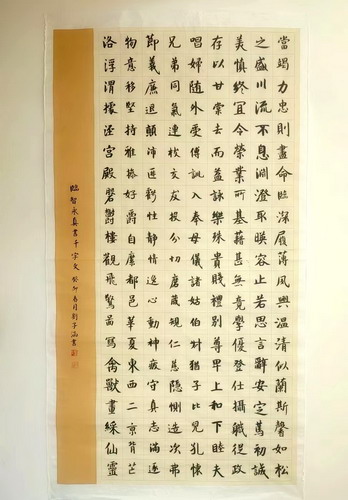 當竭力忠則盡命臨深履薄夙興溫清似蘭斯馨如松
之盛川流不息淵澄取暎容止若思言辭安定篤初誠
美慎終宜令榮業所基藉甚無竟學優登仕攝職從政
存以甘棠去而益詠樂殊貴賤禮別尊卑上和下睦夫
唱婦隨外受傅訓入奉母儀諸姑伯叔猶子比兒孔懷
兄弟同氣連枝交友投分切磨箴規仁慈隱惻造次弗
節義廉退顛沛匪虧性靜情逸心動神疲守真志滿逐
物意移堅持雅操好爵自縻都邑華夏東西二京背芒
洛浮渭據涇宮殿磐鬱樓觀飛驚啚寫禽獸畫綵仙靈
臨智永真書千字文 癸卯月劉子涵書